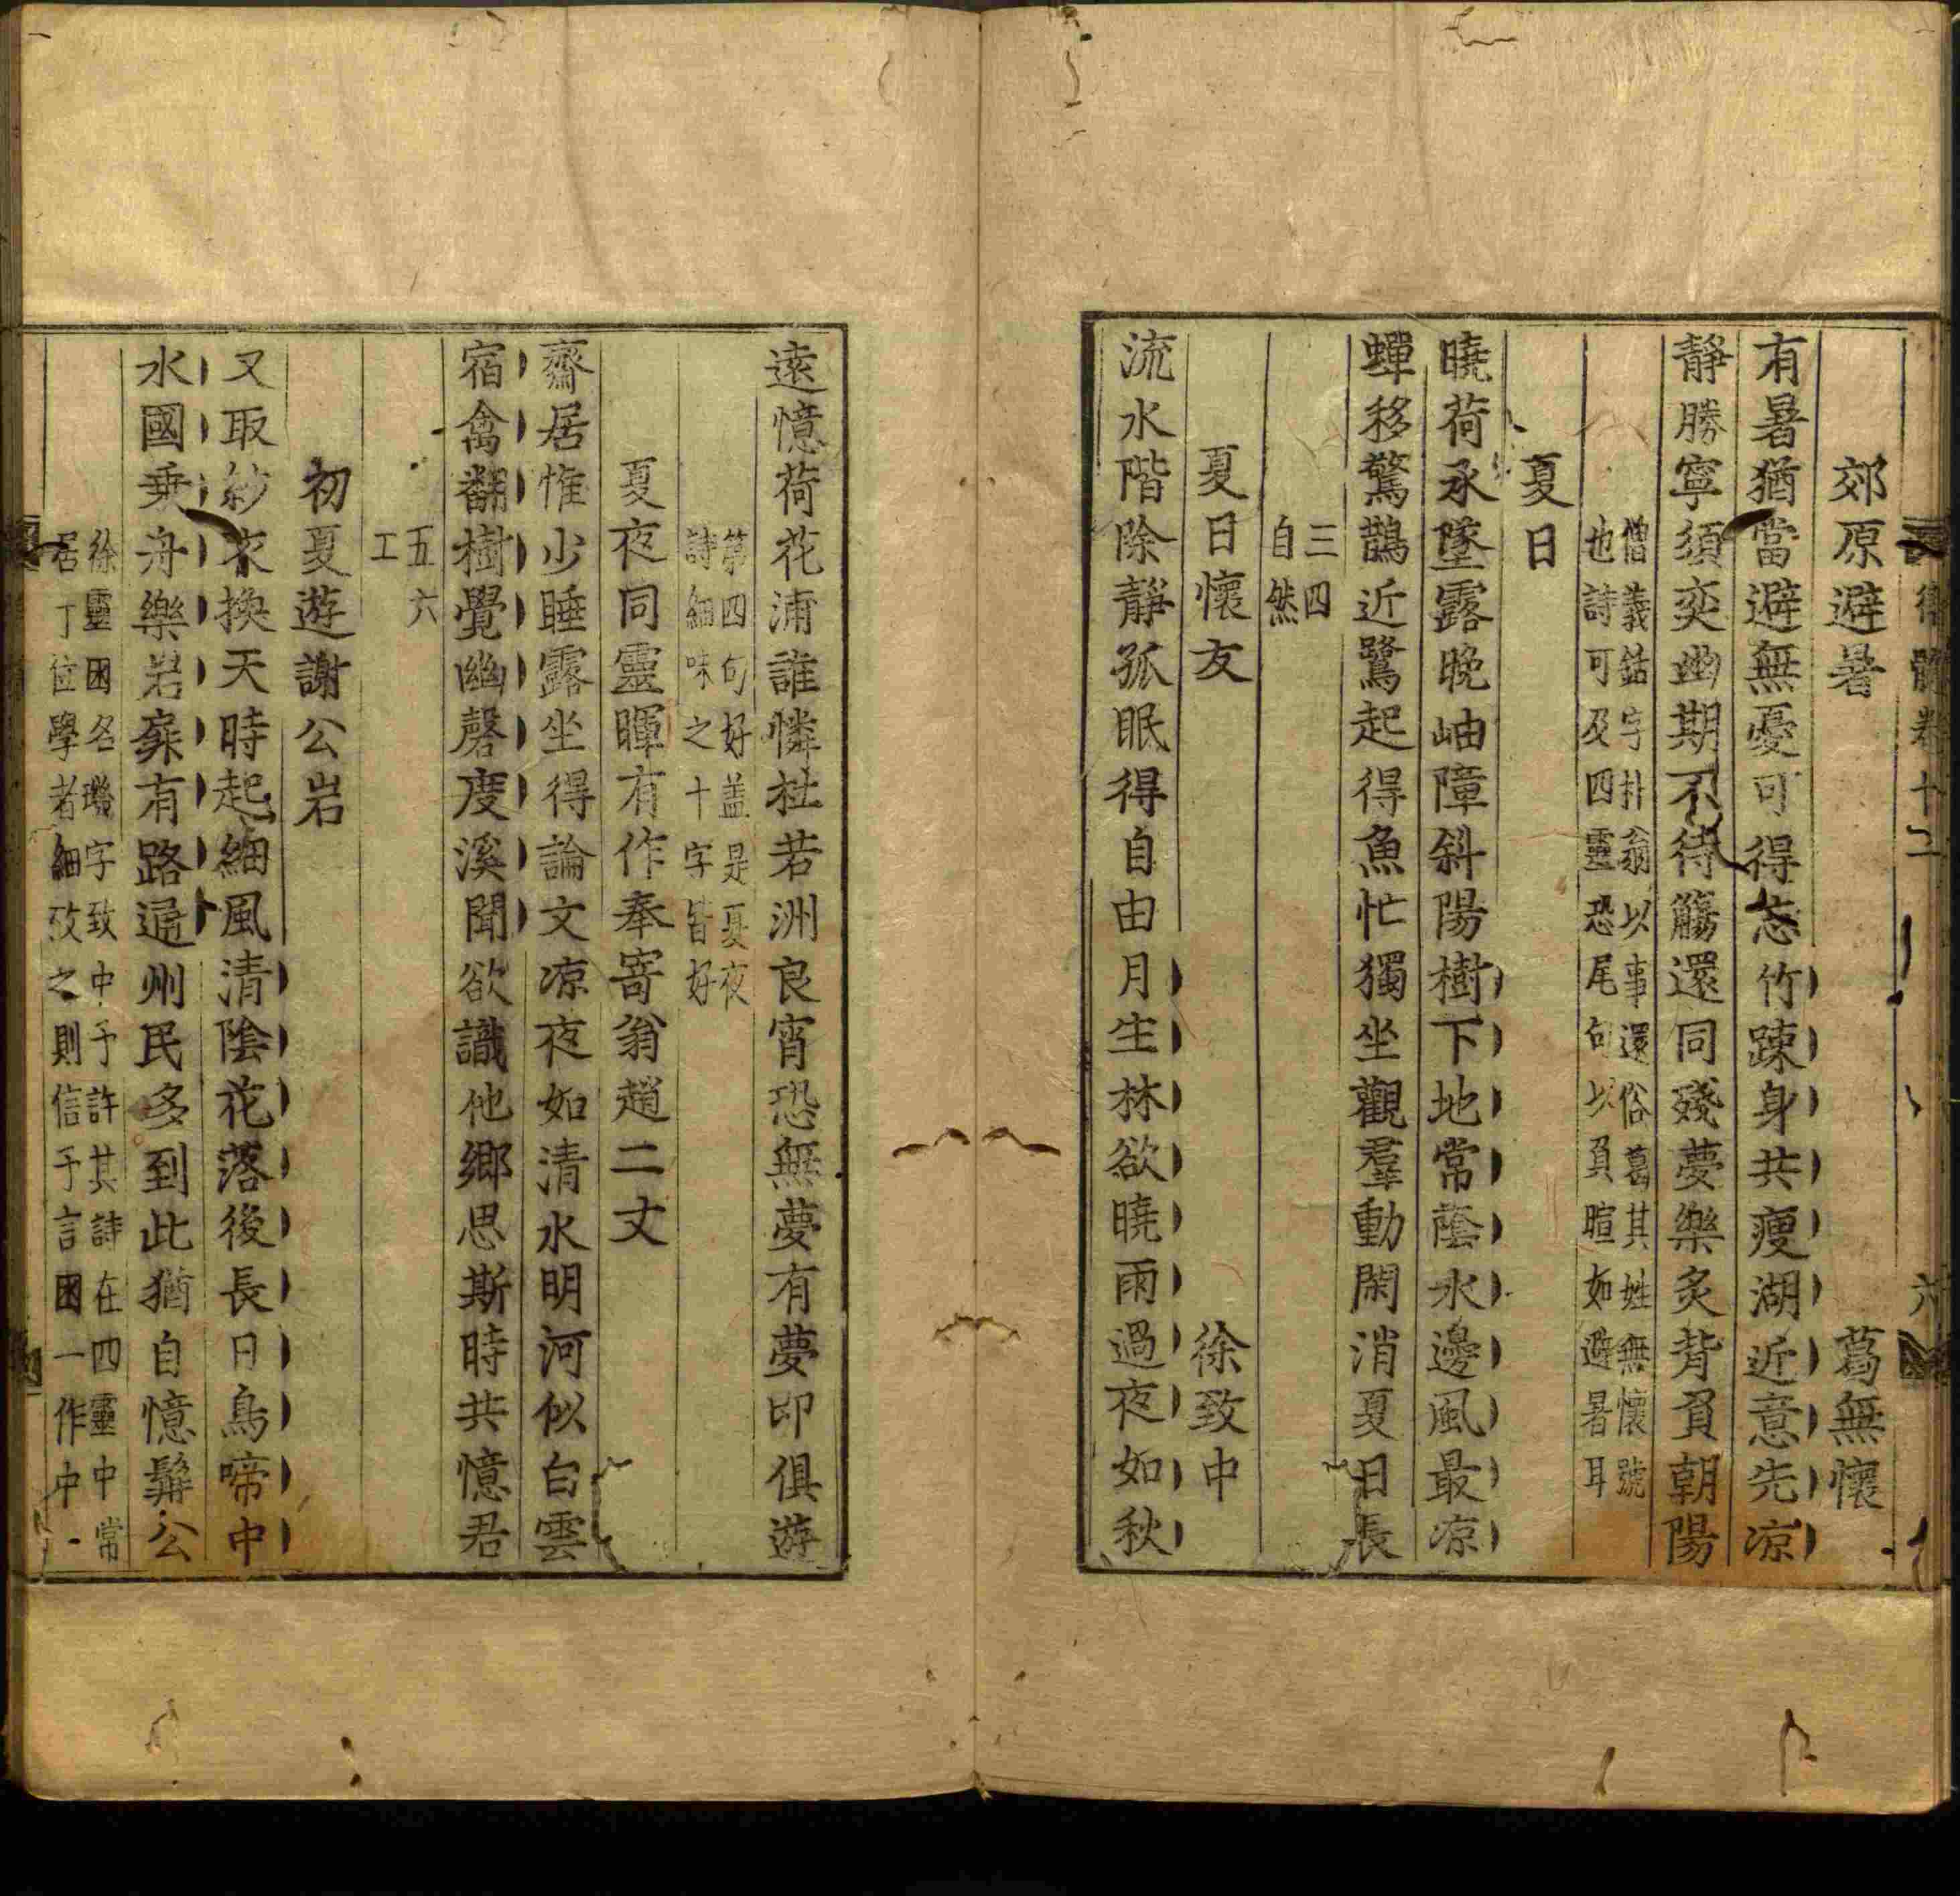 律髓卷十二 六
郊原避暑 葛無懷
有暑猶當避無憂可得忘竹踈身共瘦湖近意先凉
静勝寧須奕幽期不待觴還同殘夢樂炙背負朝陽
僧義銛字朴翁以事還俗葛其姓無懷號
也詩可及四靈恐尾句以負暄如避暑耳
夏日
曉荷承墜露晚岫障斜陽樹下地常蔭水邊風最凉
蟬移驚鵲近鷺起得魚忙獨坐觀羣動閑消夏日長
三四
自然
夏日懷友 徐致中
流水階除静孤眠得自由月生林欲曉雨過夜如秋
遠憶荷花浦誰憐杜若洲良宵恐無夢有夢即俱遊
第四句好盖是夏夜
詩細味之十字皆好
夏夜同靈暉有作奉寄翁趙二丈
齋居惟少睡露坐得論文凉夜如清水明河似白雲
宿禽翻樹覺幽磬度溪聞欲識他鄉思斯時共憶君
五六
工
初夏遊謝公岩
又取紗衣換天時起細風清陰花落後長日鳥啼中
水國乗舟樂岩扉有路通州民多到此猶自憶髯公
徐靈困名璣字致中予許其詩在四靈中常
居丁位學者細攷之則信予言困一作中